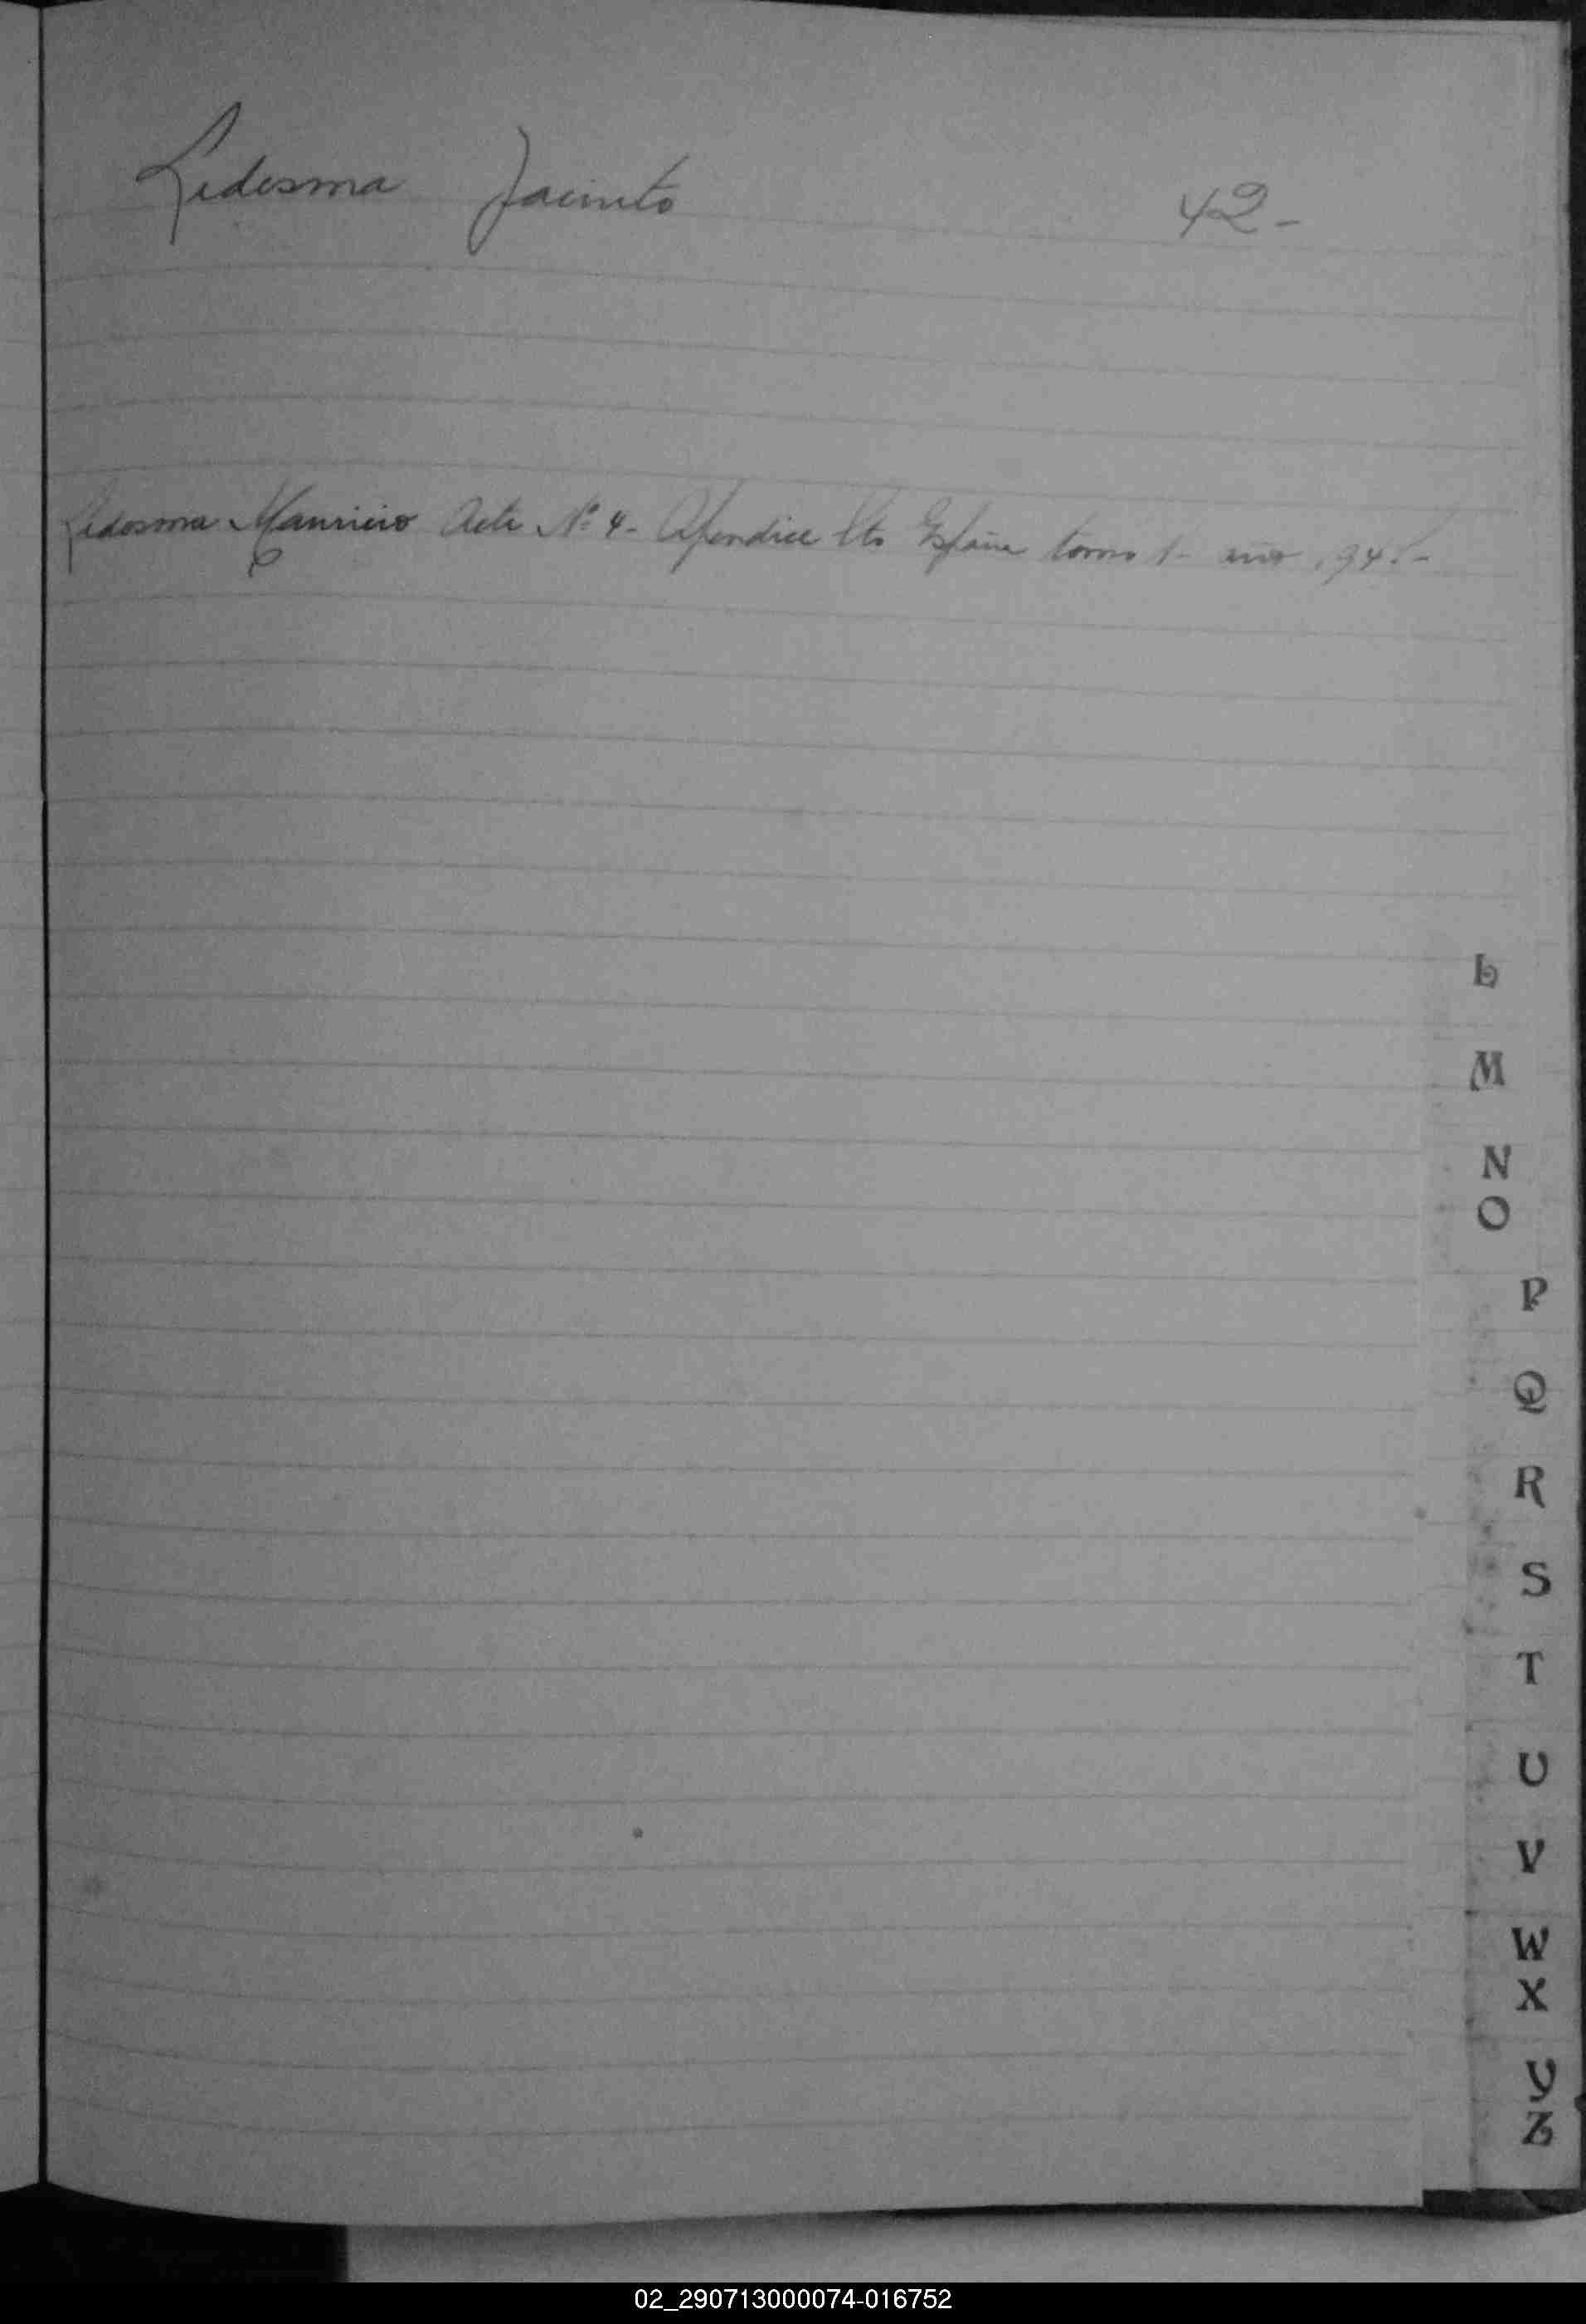 Ledesma Jacinto 42-
Ledesma Mauricio Acta Nº 4- Apendice Pto España tomo 1- año 194
L
M
N
O
P
Q
R
S
T
U
V
W
X
Y
Z
02_290713000074-016752